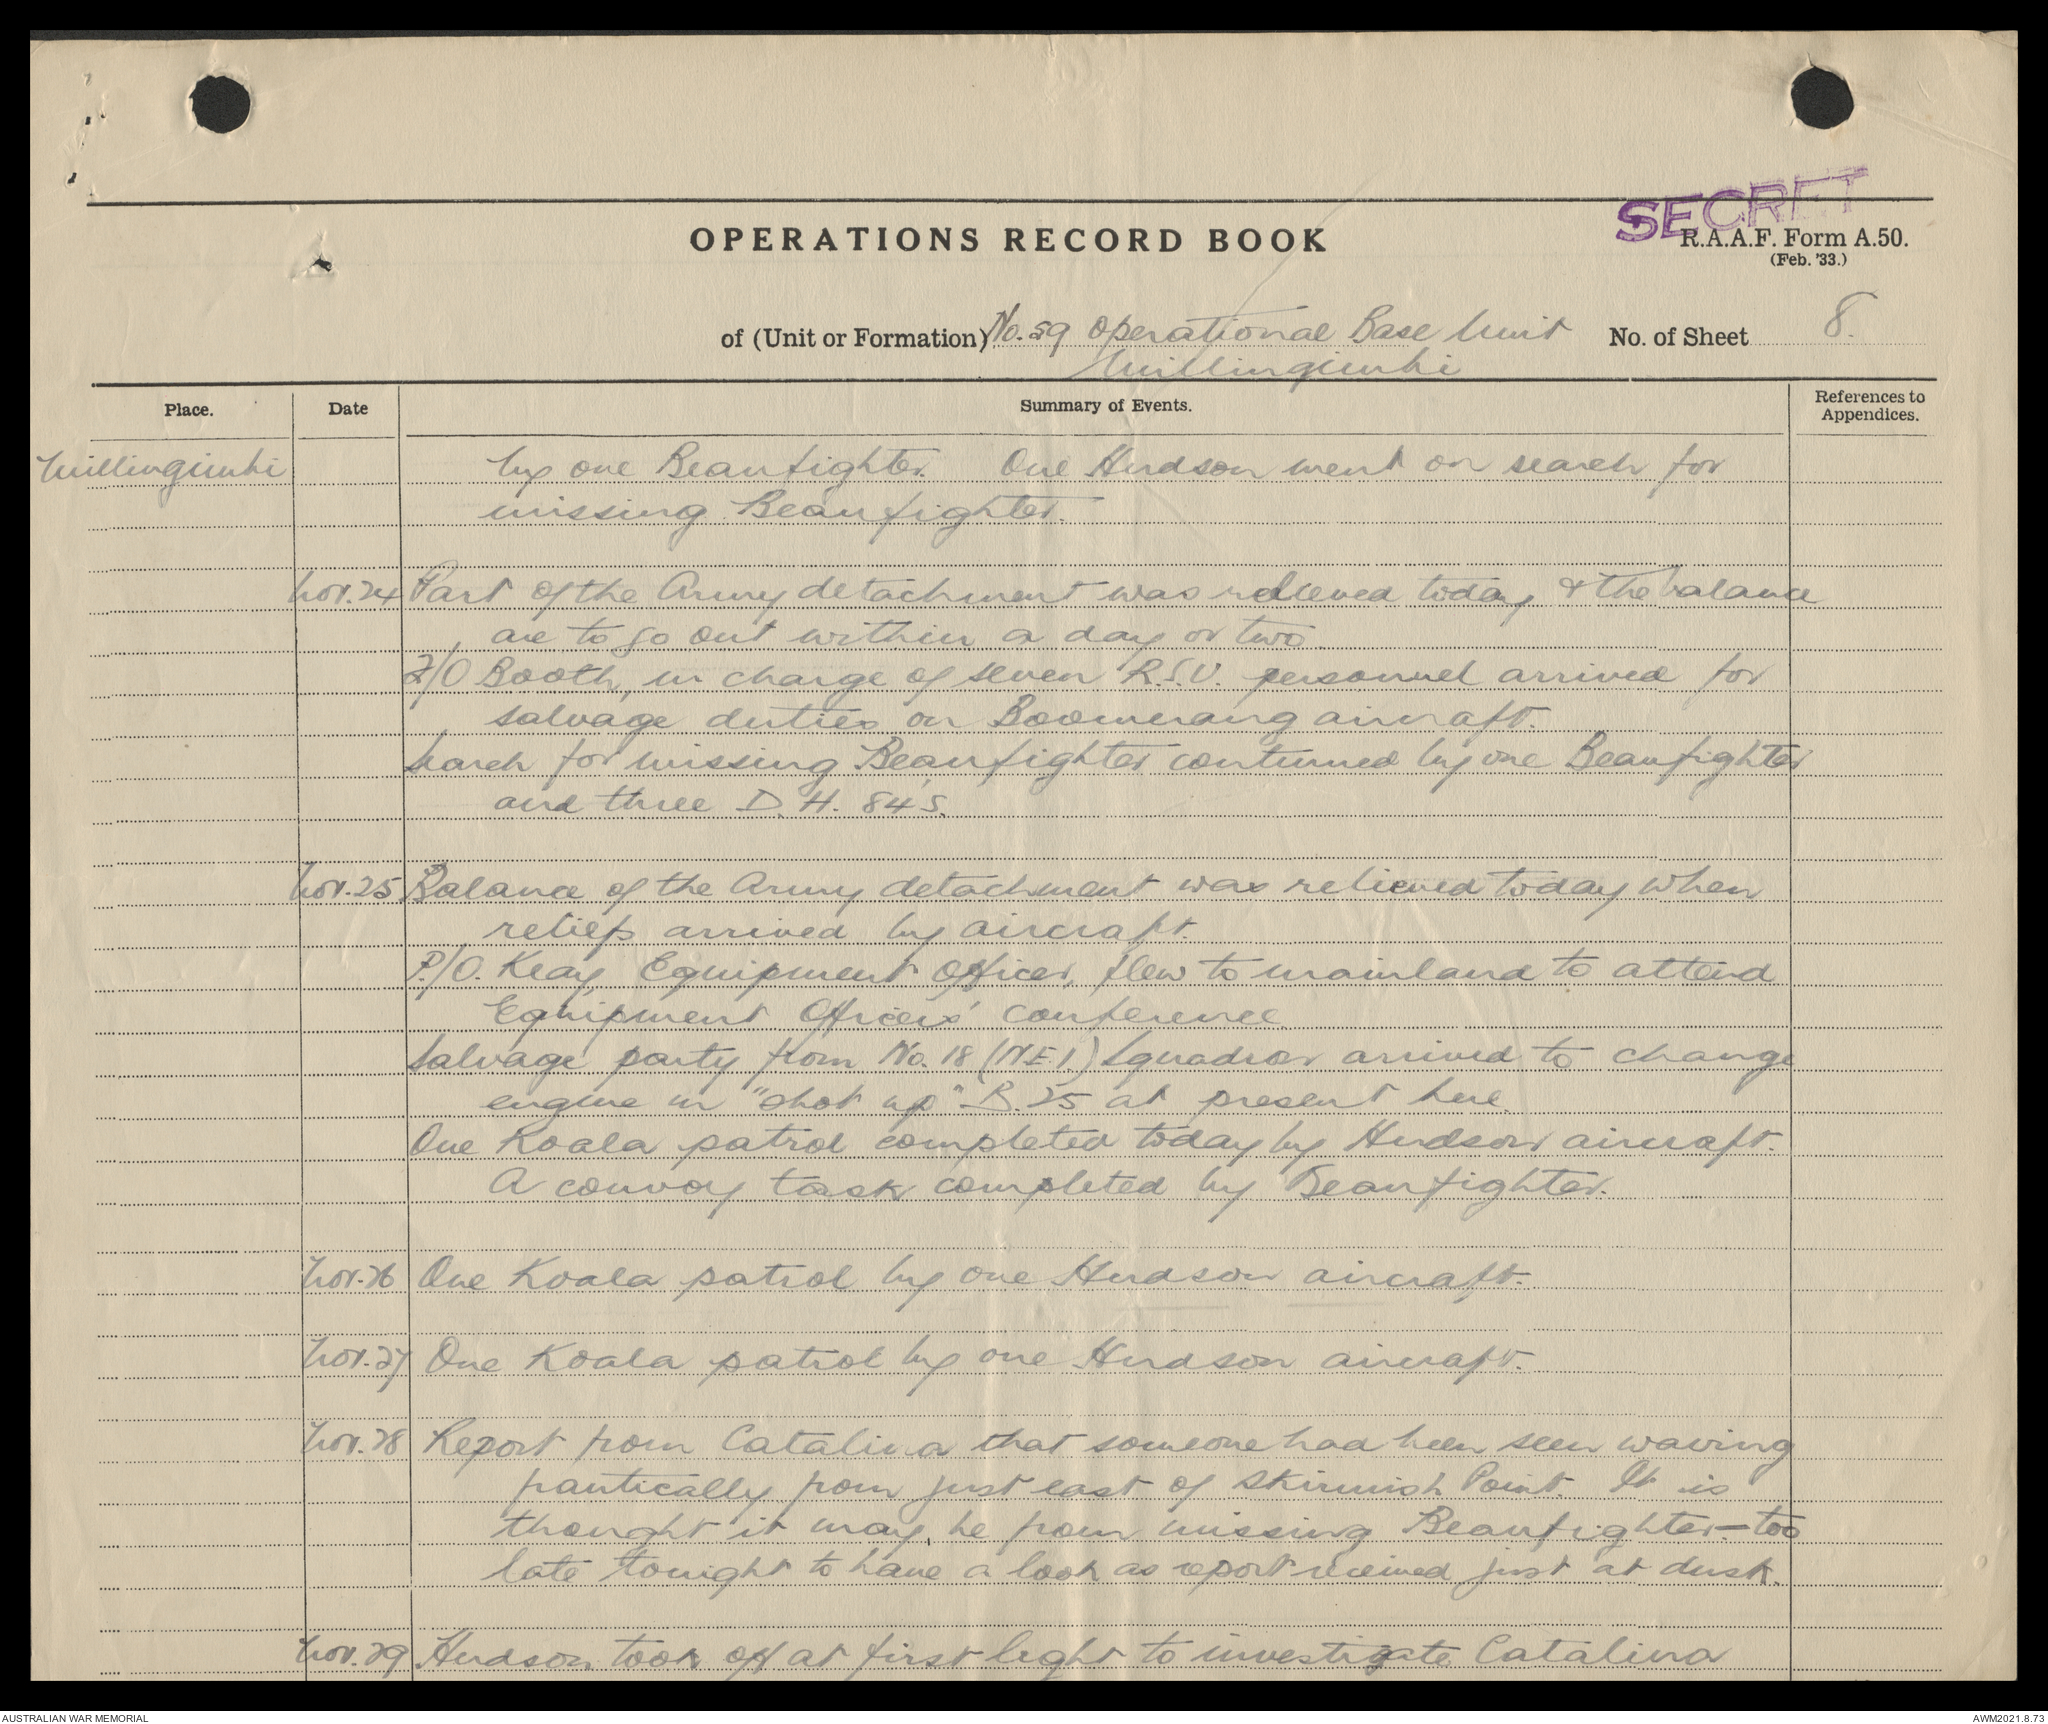 SECRET
OPERATIONS RECORD BOOK
R.A.A.F. Form A.50.
(Feb. '33.)
of (Unit or Formation) No. 59 Operational Base Unit
No. of Sheet 8.
Millingimbi
Place.
Date
Summary of Events.
References to
Appendices.
Millingimbi
by one Beaufighter. One Hudson went on search for
missing Beaufighter.
Nov. 24 Part of the Army detachment was relieved today & the balance
are to go out within a day or two.
F/O Booth, in charge of seven R.S.U. personnel arrived for
salvage duties on Boomerang aircraft.
Search for missing Beaufighter continued by one Beaufighter
and three D.H. 84's.
Nov. 25 Balance of the Army detachment was relieved today when
reliefs arrived by aircraft.
P/O. Keay, Equipment Officer, flew to mainland to attend
Equipment Officers' conference
Salvage party from No. 18 (N.E.I.) Squadron arrived to change
engine in "shot up" B.25 at present here.
One Koala patrol completed today by Hudson aircraft.
A convoy task completed by Beaufighter.
Nov. 26 One Koala patrol by one Hudson aircraft.
Nov. 27 One Koala patrol by one Hudson aircraft.
Nov. 28 Report from Catalina that someone had been seen waving
frantically from just east of Skirmish Point. It is
thought it may be from missing Beaufighter - too
late tonight to have a look as report received just at dusk.
Nov. 29 Hudson took off at first light to investigate Catalina
AUSTRALIAN WAR MEMORIAL
AWM2021.8.73